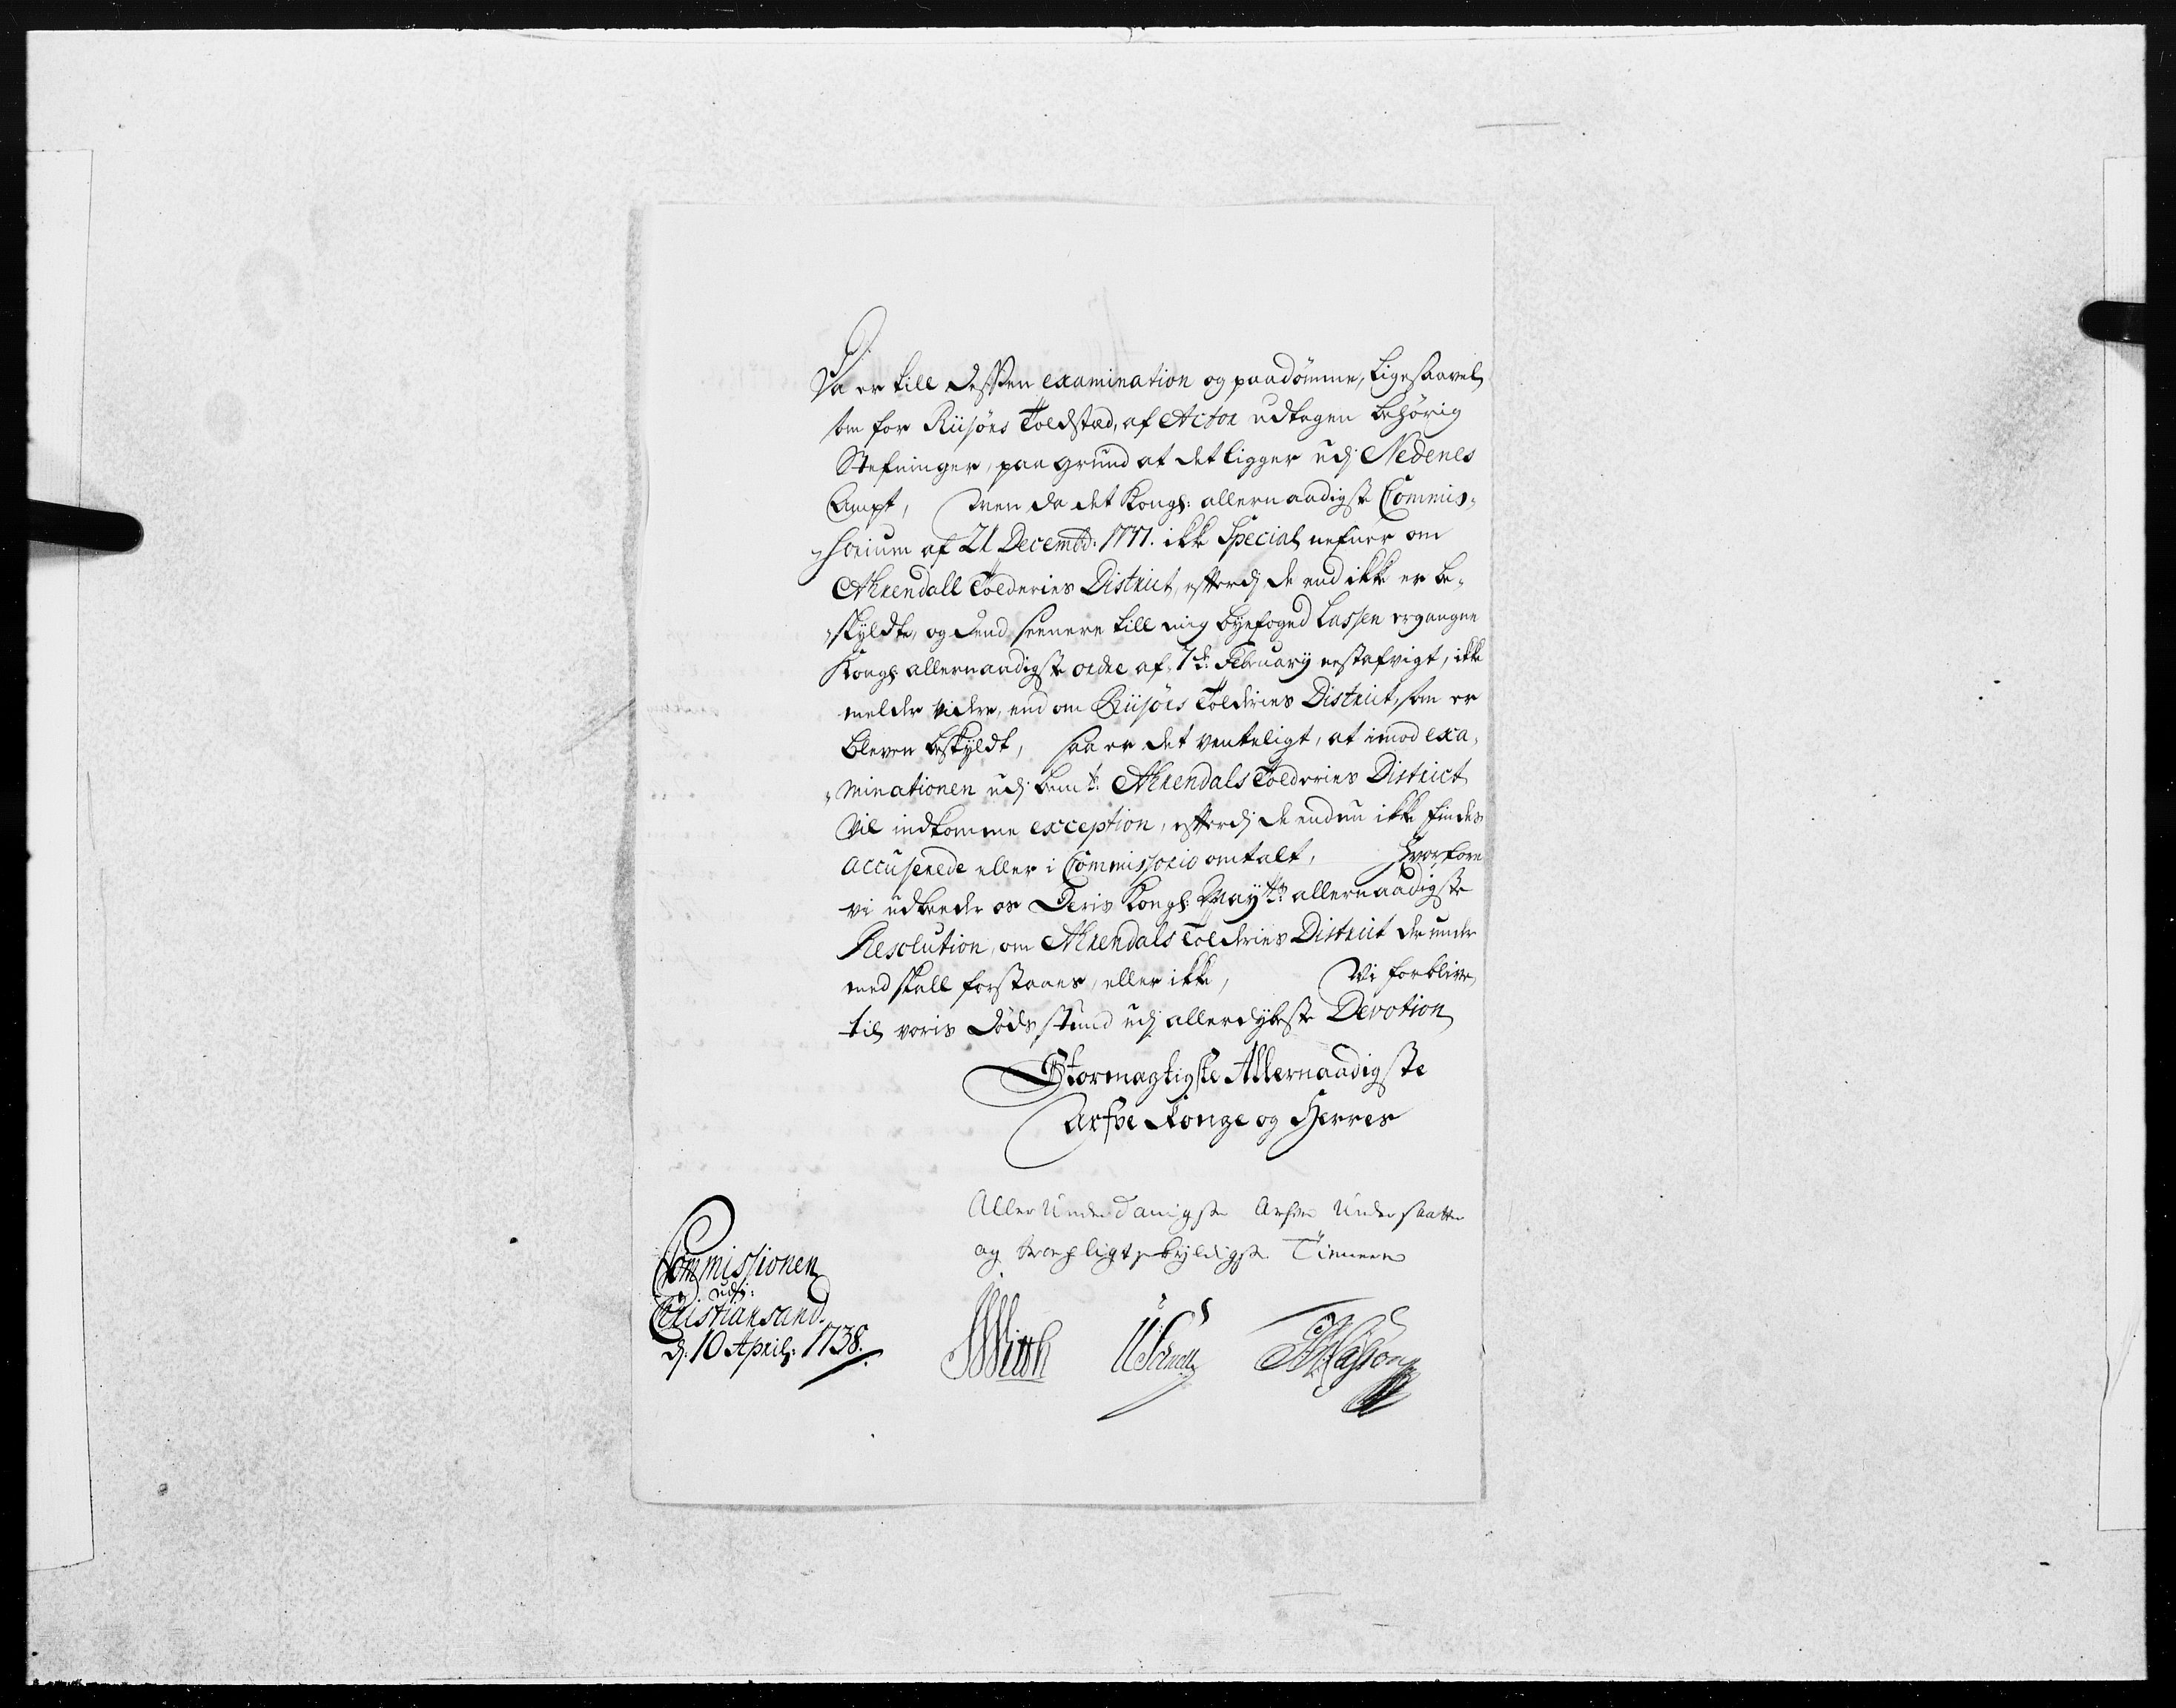 Da er till dessen examination og paadömme, ligesaavel
som for Riisörs Toldstæd, af Actor udtagen behörig
Stefninger, paa grund at det ligger udj Nedenes
Ampt, Men da det Kongl: allernaadigste Commis„
„sorium af 21 Decembr: 1737. ikke Special nefner om
Ahrendall Tolderies District, efterdj de end ikke er be„
„skyldte, og dend seenere till mig byefoged Lassen ergangne
Kongl allernaadigste ordre af 7de February nestafvigt, ikke
melder videre, end om Riisörs Tolderies District, som er
bleven beskyldt, saa er det venteligt, at imod exa„
„minationen udj bemte Ahrendals Tolderies District
vil indkomme exception, efterdj de endnu ikke findes
accuserede eller i Commissorio omtalt, Hvorfore
vi udbeder os Deris Kongl: Mayts: allernaadigste
Resolution, om Ahrendals Tolderies District der under
med skall forstaaes, eller ikke, Vi forblive,
til voris Döds stund udj allerdybeste Devotion
Stormægtigste Allernaadigste
Arfve Konge og Herres
Allerunderdanigste Arfve Undersaatter
og pligtskyldigste Tienere
Commissionen
udj:
Christiansand.
d: 10 April: 1738.